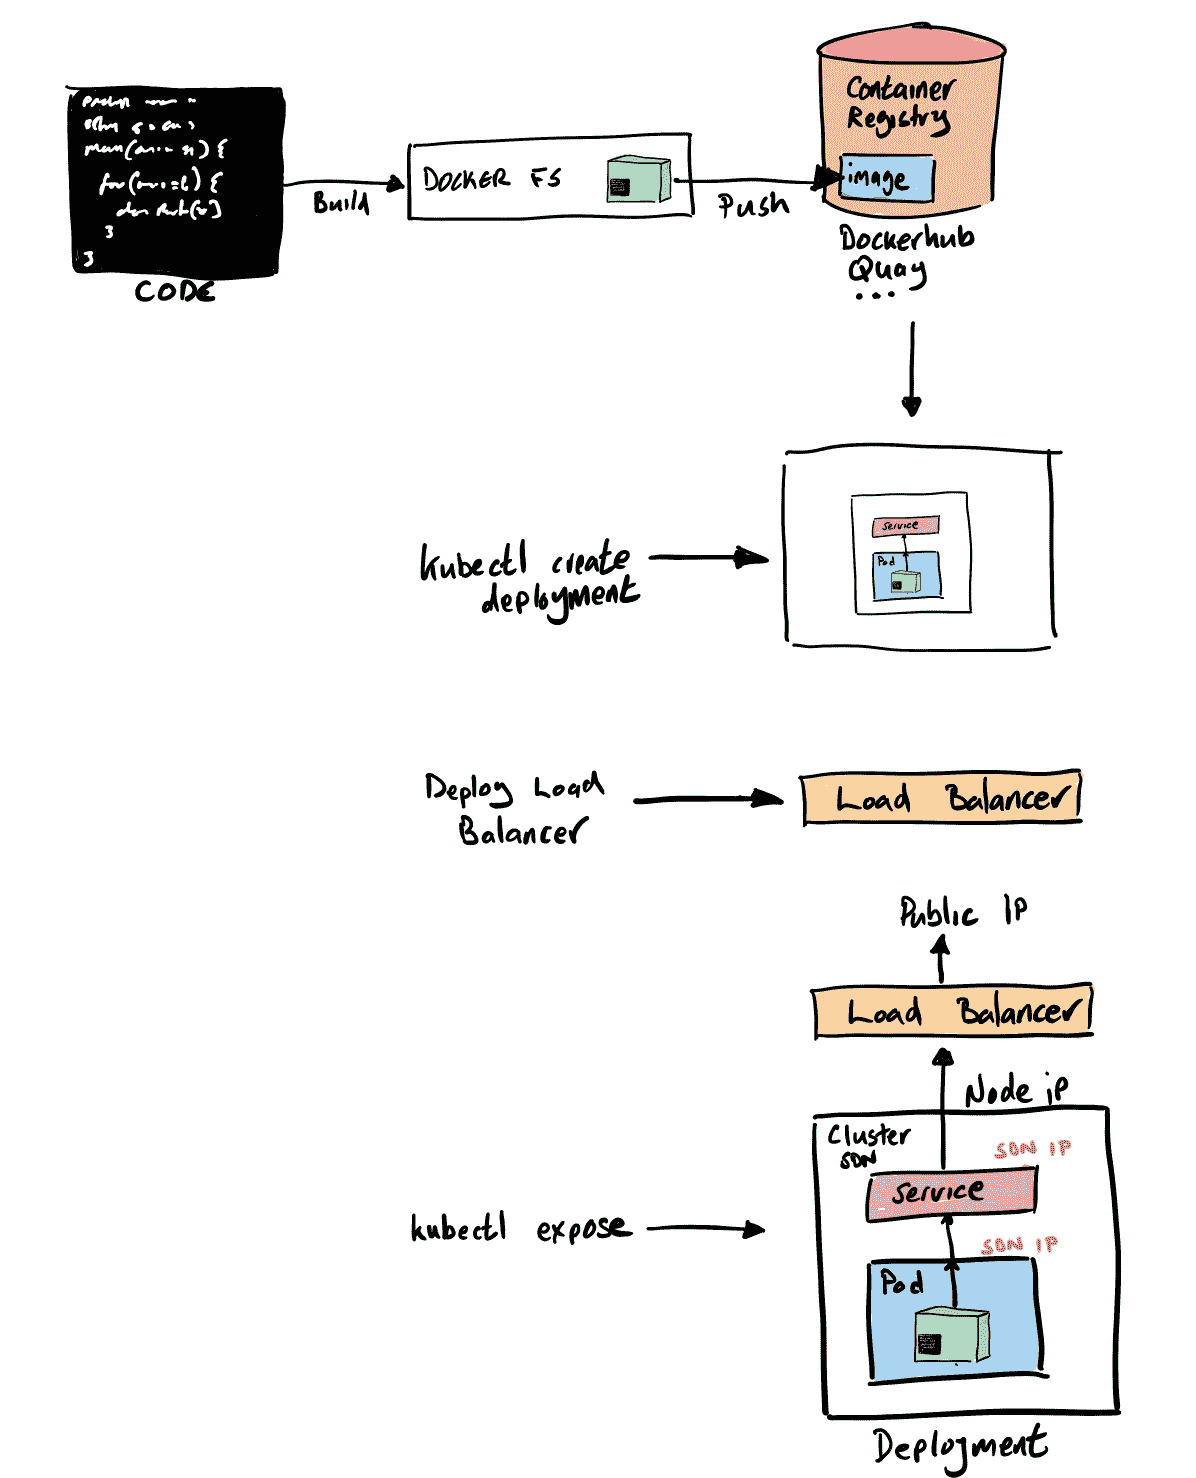 CODE
Build
DOCKER FS
Push
Container
Registry
image
Dockerhub
Quay
...
kubectl create
deployment
Service
Pod
Deploy Load
Balancer
Load Balancer
Public IP
Load Balancer
Node iP
Cluster
SDN
SDN IP
Service
kubectl expose
SDN IP
Pod
Deployment